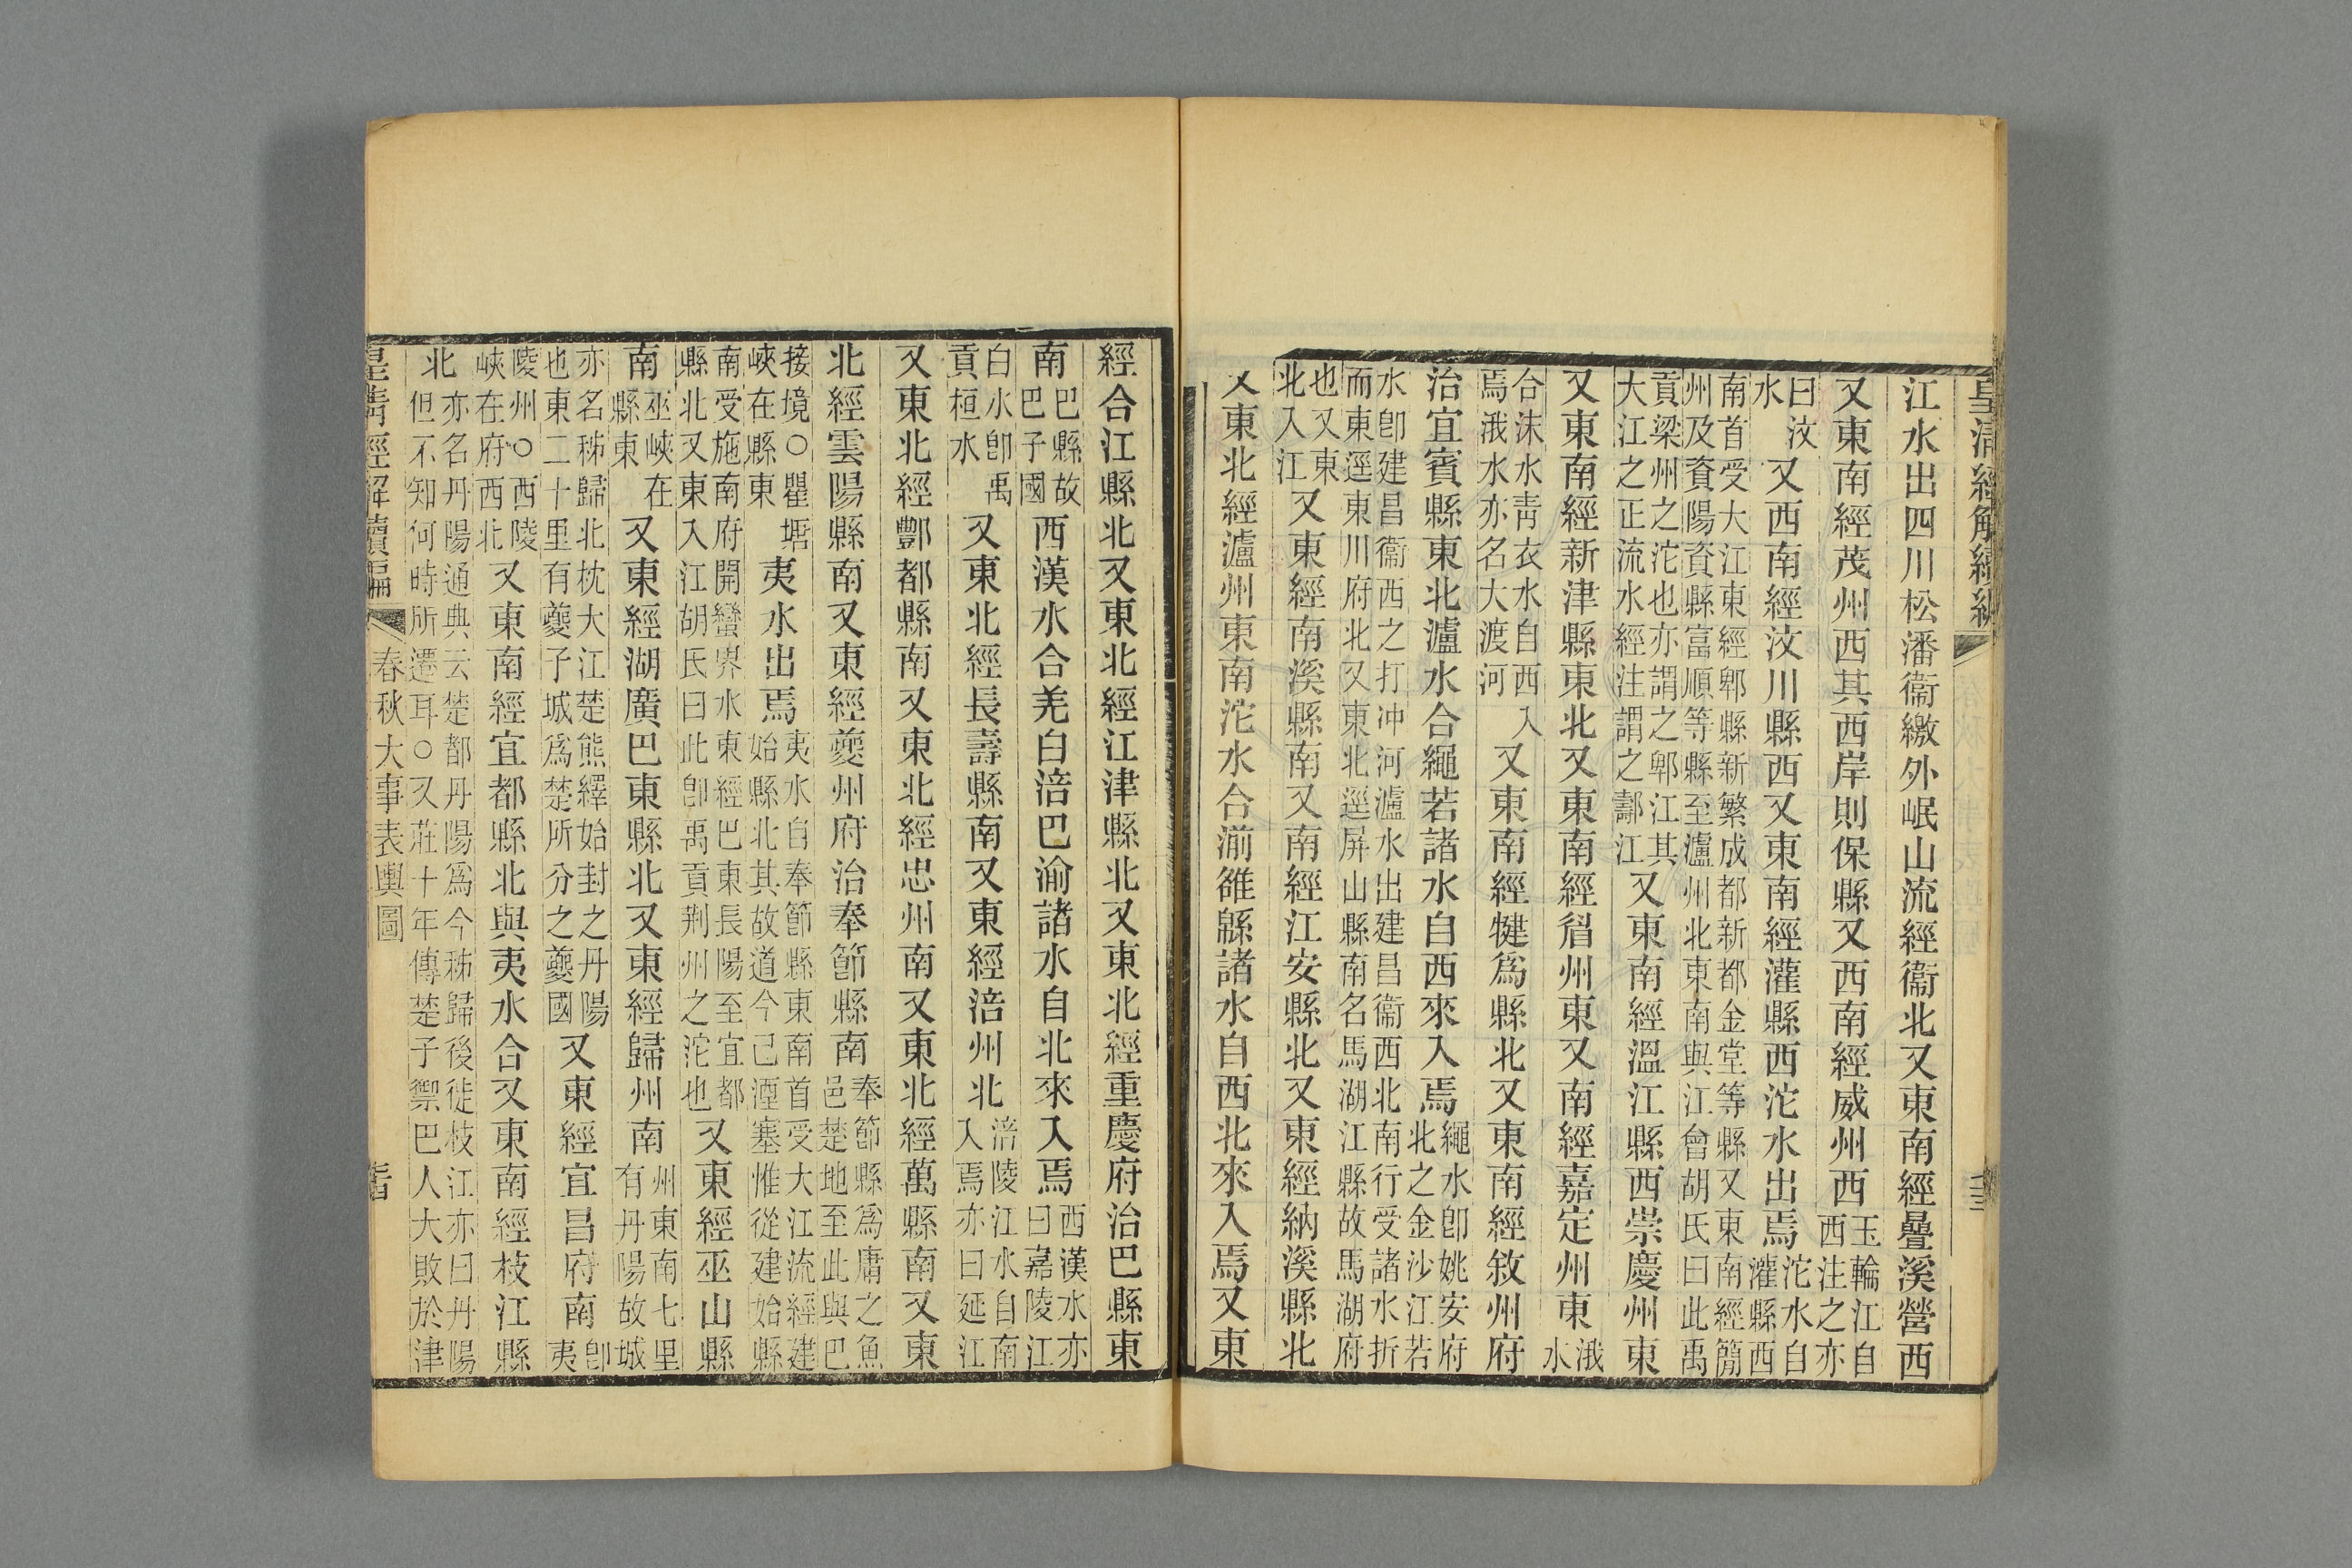 皇清經解續編
江水出四川松潘衞繳外岷山流經衞北又東南經疊溪營西
又東南經茂州西其西岸則保縣又西南經威州西玉輪江自西注之亦
曰汶水又西南經汶川縣西又東南經灌縣西沱水出焉沱水自灌縣西
南首受大江東經郫縣新繁成都新都金堂等縣又東南經簡
州及資陽資縣富順等縣至瀘州北東南與江會胡氏曰此禹
貢梁州之沱也亦謂之郫江其大江之正流水經注謂之江又東南經溫江縣西崇慶州東
又東南經新津縣東北又東南經眉州東又南經嘉定州東涐水
合沬水靑衣水自西入焉涐水亦名大渡河又東南經犍爲縣北又東南經敘州府
治宜賓縣東北瀘水合繩若諸水自西來入焉繩水卽姚安府北之金沙江若
水卽建昌衞西之打冲河瀘水出建昌衞西北南行受諸水折
而東逕東川府北又東北逕屏山縣南名馬湖江縣故馬湖府
也又東北入江又東經南溪縣南又南經江安縣北又東經納溪縣北
又東北經瀘州東南沱水合湔雒緜諸水自西北來入焉又東
經合江縣北又東北經江津縣北又東北經重慶府治巴縣東
南巴縣故巴子國西漢水合羌白涪巴渝諸水自北來入焉西漢水亦曰嘉陵江
白水卽禹貢桓水又東北經長壽縣南又東經涪州北涪陵江水自南入焉亦曰延江
又東北經酆都縣南又東北經忠州南又東北經萬縣南又東
北經雲陽縣南又東經夔州府治奉節縣南奉節縣爲庸之魚邑楚地至此與巴
接境○瞿塘峽在縣東夷水出焉夷水自奉節縣東南首受大江流經建始縣北其故道今已湮塞惟從建始縣
南受施南府開蠻界水東經巴東長陽至宜都縣北又東入江胡氏曰此卽禹貢荆州之沱也又東經巫山縣
南巫峽在縣東又東經湖廣巴東縣北又東經歸州南州東南七里有丹陽故城
亦名秭歸北枕大江楚熊繹始封之丹陽也東二十里有夔子城爲楚所分之夔國又東經宜昌府南卽夷
陵州○西陵峽在府西北又東南經宜都縣北與夷水合又東南經枝江縣
北亦名丹陽通典云楚都丹陽爲今秭歸後徙枝江亦曰丹陽但不知何時所遷耳○又莊十年傳楚子禦巴人大敗於津
皇淸經解續編 春秋大事表輿圖